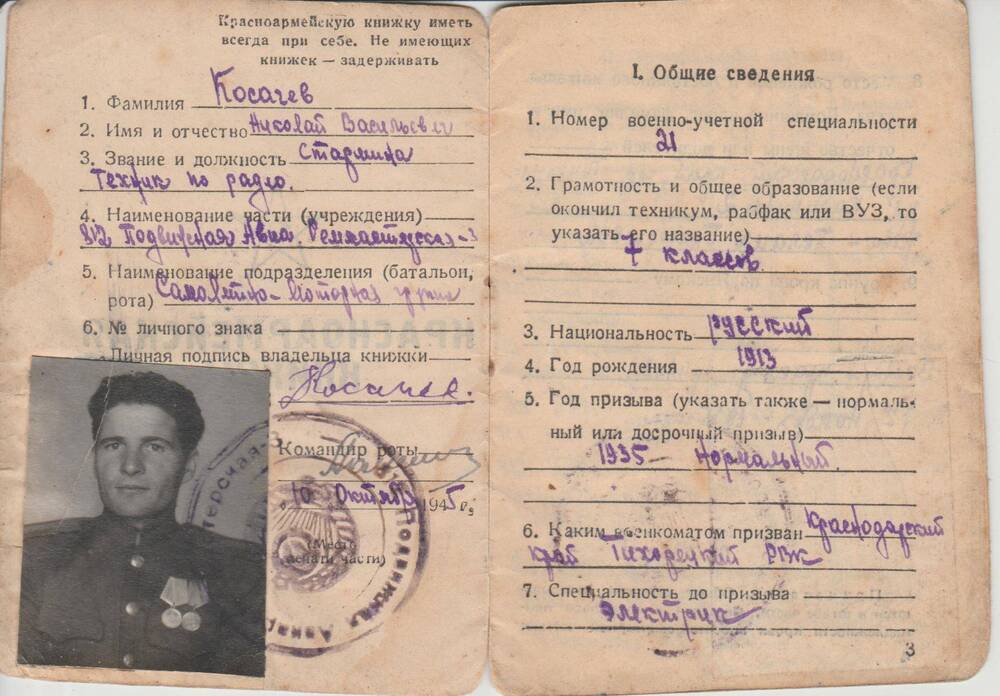 Красноармейскую книжку иметь
всегда при себе. Не имеющих
книжек — задерживать
1. Фамилия Косачев
2. Имя и отчество Николай Васильевич
3. Звание и должность Старшина
Техник по радио.
4. Наименование части (учреждения)
Подвижская Авиа.
5. Наименование подразделения (батальон,
рота) Самолетно-моторная группа
6. № личного знака —
Личная подпись владельца книжки
Косачев.
Командир роты
10 Октября 1945 г.
(Место
печати части)
терская-3
Подвижная Авиа
I. Общие сведения
1. Номер военно-учетной специальности
21
2. Грамотность и общее образование (если
окончил техникум, рабфак или ВУЗ, то
указать его название)
7 классов
3. Национальность русский
4. Год рождения 1913
5. Год призыва (указать также — нормаль-
ный или досрочный призыв)
1935 — Нормальный.
6. Каким военкоматом призван Краснодарский
край Тихорецкий РВК
7. Специальность до призыва
Электрик
3